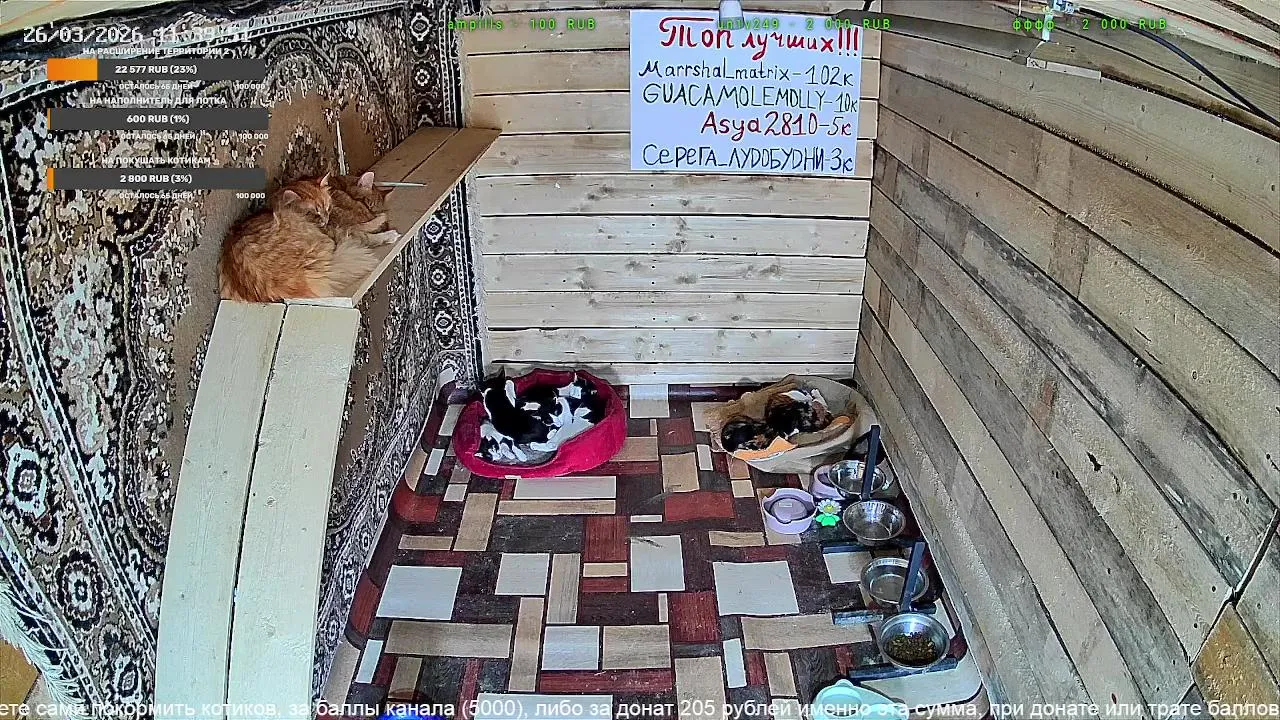 ampills - 100 RUB
un1v249 - 2 000 RUB
ффф - 2 000 RUB
26/03/2026 11:39:51
НА РАСШИРЕНИЕ ТЕРРИТОРИИ 2
22 577 RUB (23%)
0 ОСТАЛОСЬ 65 ДНЕЙ 100 000
НА НАПОЛНИТЕЛЬ ДЛЯ ЛОТКА
600 RUB (1%)
0 ОСТАЛОСЬ 65 ДНЕЙ 100 000
НА ПОКУШАТЬ КОТИКАМ
2 800 RUB (3%)
0 ОСТАЛОСЬ 65 ДНЕЙ 100 000
Топ лучших!!!
Marrshal_matrix-102к
GUACAMOLEMOLLY-10к
Asya2810-5к
Серега_лудобудни-3к
ете сами покормить котиков, за баллы канала (5000), либо за донат 205 рублей именно эта сумма, при донате или трате баллов